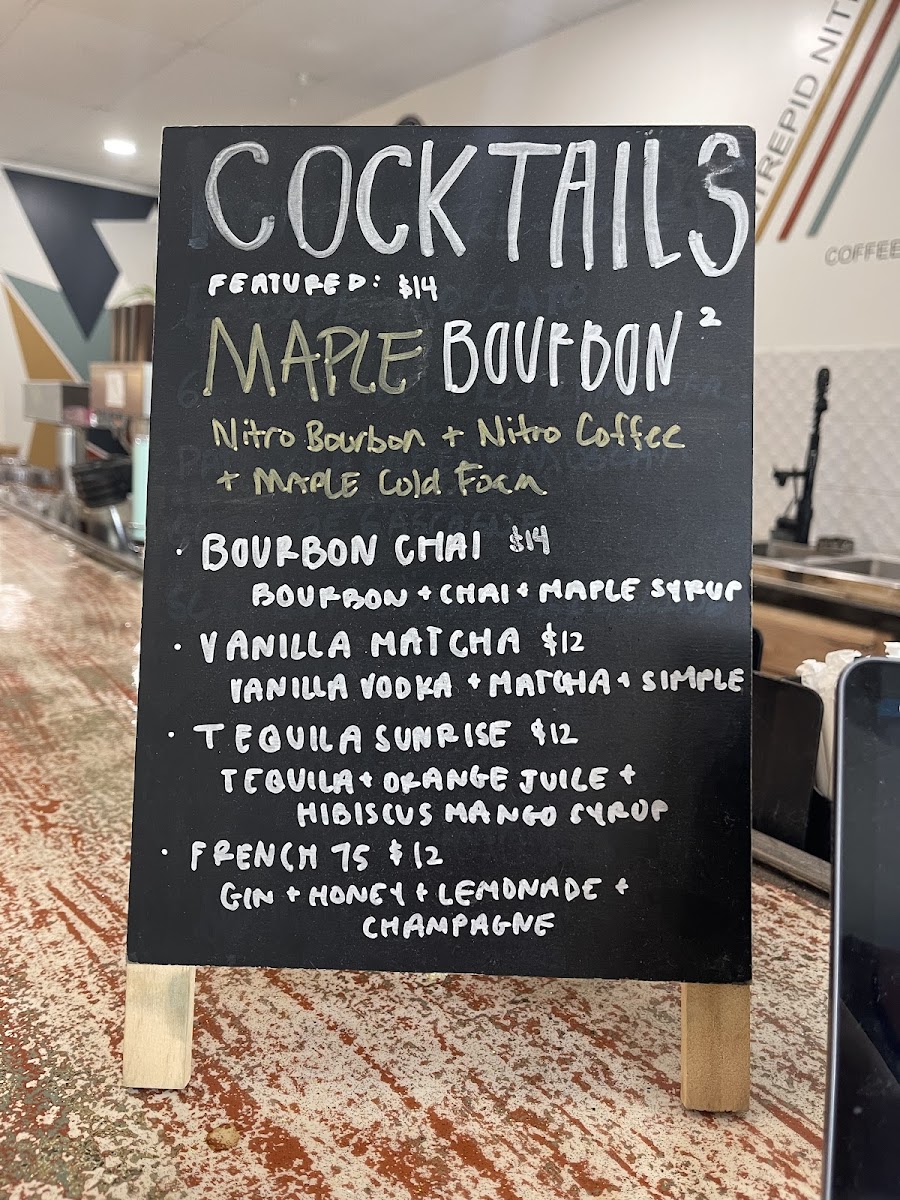 COCKTAILS
FEATURED: $14
MAPLE BOURBON ²
Nitro Bourbon + Nitro Coffee
+ MAPLE Cold Foam
· BOURBON CHAI $14
BOURBON + CHAI + MAPLE SYRUP
· VANILLA MATCHA $12
VANILLA VODKA + MATCHA + SIMPLE
· TEQUILA SUNRISE $12
TEQUILA + ORANGE JUICE +
HIBISCUS MANGO SYRUP
· FRENCH 75 $12
GIN + HONEY + LEMONADE +
CHAMPAGNE
TREPID NIT
COFFEE